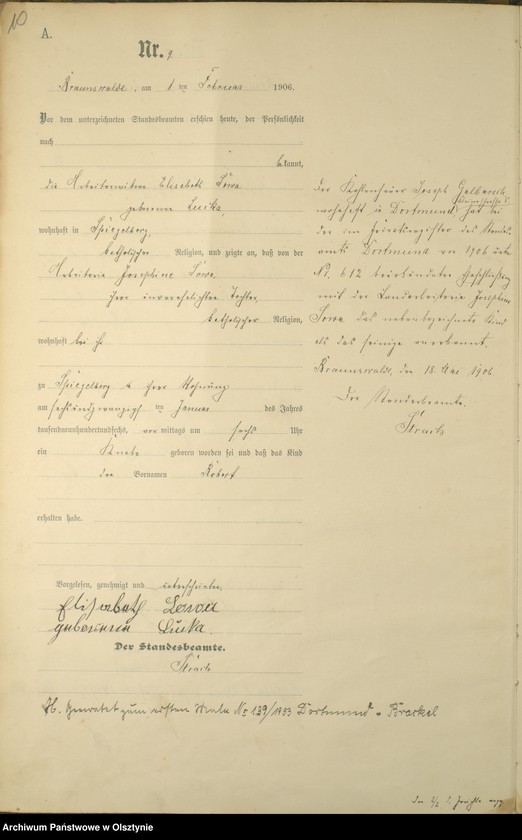 10
A.
Nr. 9
Braunswalde, am 1 ten Februar 1906.
Vor dem unterzeichneten Standesbeamten erschien heute, der Persönlichkeit
nach
bekannt,
die Arbeiterwitwe Elisabeth Sowa
geborene Lucka
wohnhaft in Spiegelberg,
katholischer Religion, und zeigte an, daß von der
Arbeiterin Josephine Sowa,
ihrer unverehelichten Tochter,
katholischer Religion,
wohnhaft bei ihr
zu Spiegelberg in ihrer Wohnung
am sechsundzwanzigsten ten Januar des Jahres
tausendneunhundertundsechs, vor mittags um sechs Uhr
ein Knabe geboren worden sei und daß das Kind
den Vornamen Robert
erhalten habe.
Vorgelesen, genehmigt und unterschrieben
Elisabeth Sowa
geborene Lucka.
Der Standesbeamte.
Der Kohlenhauer Joseph
wohnhaft in Dortmund hat bei
der im Heiratsregister des Standes-
amts Dortmund von 1906 unter
No. 612 beurkundeten Eheschließung
mit der Landarbeiterin Josephine
Sowa das nebenbezeichnete Kind
als das seinige anerkannt.
Braunswalde, den 18. Mai 1906
Der Standesbeamte.
H. Geheiratet zum ersten Male No 139/1933 Dortmund - Brackel
Archiwum Państwowe w Olsztynie